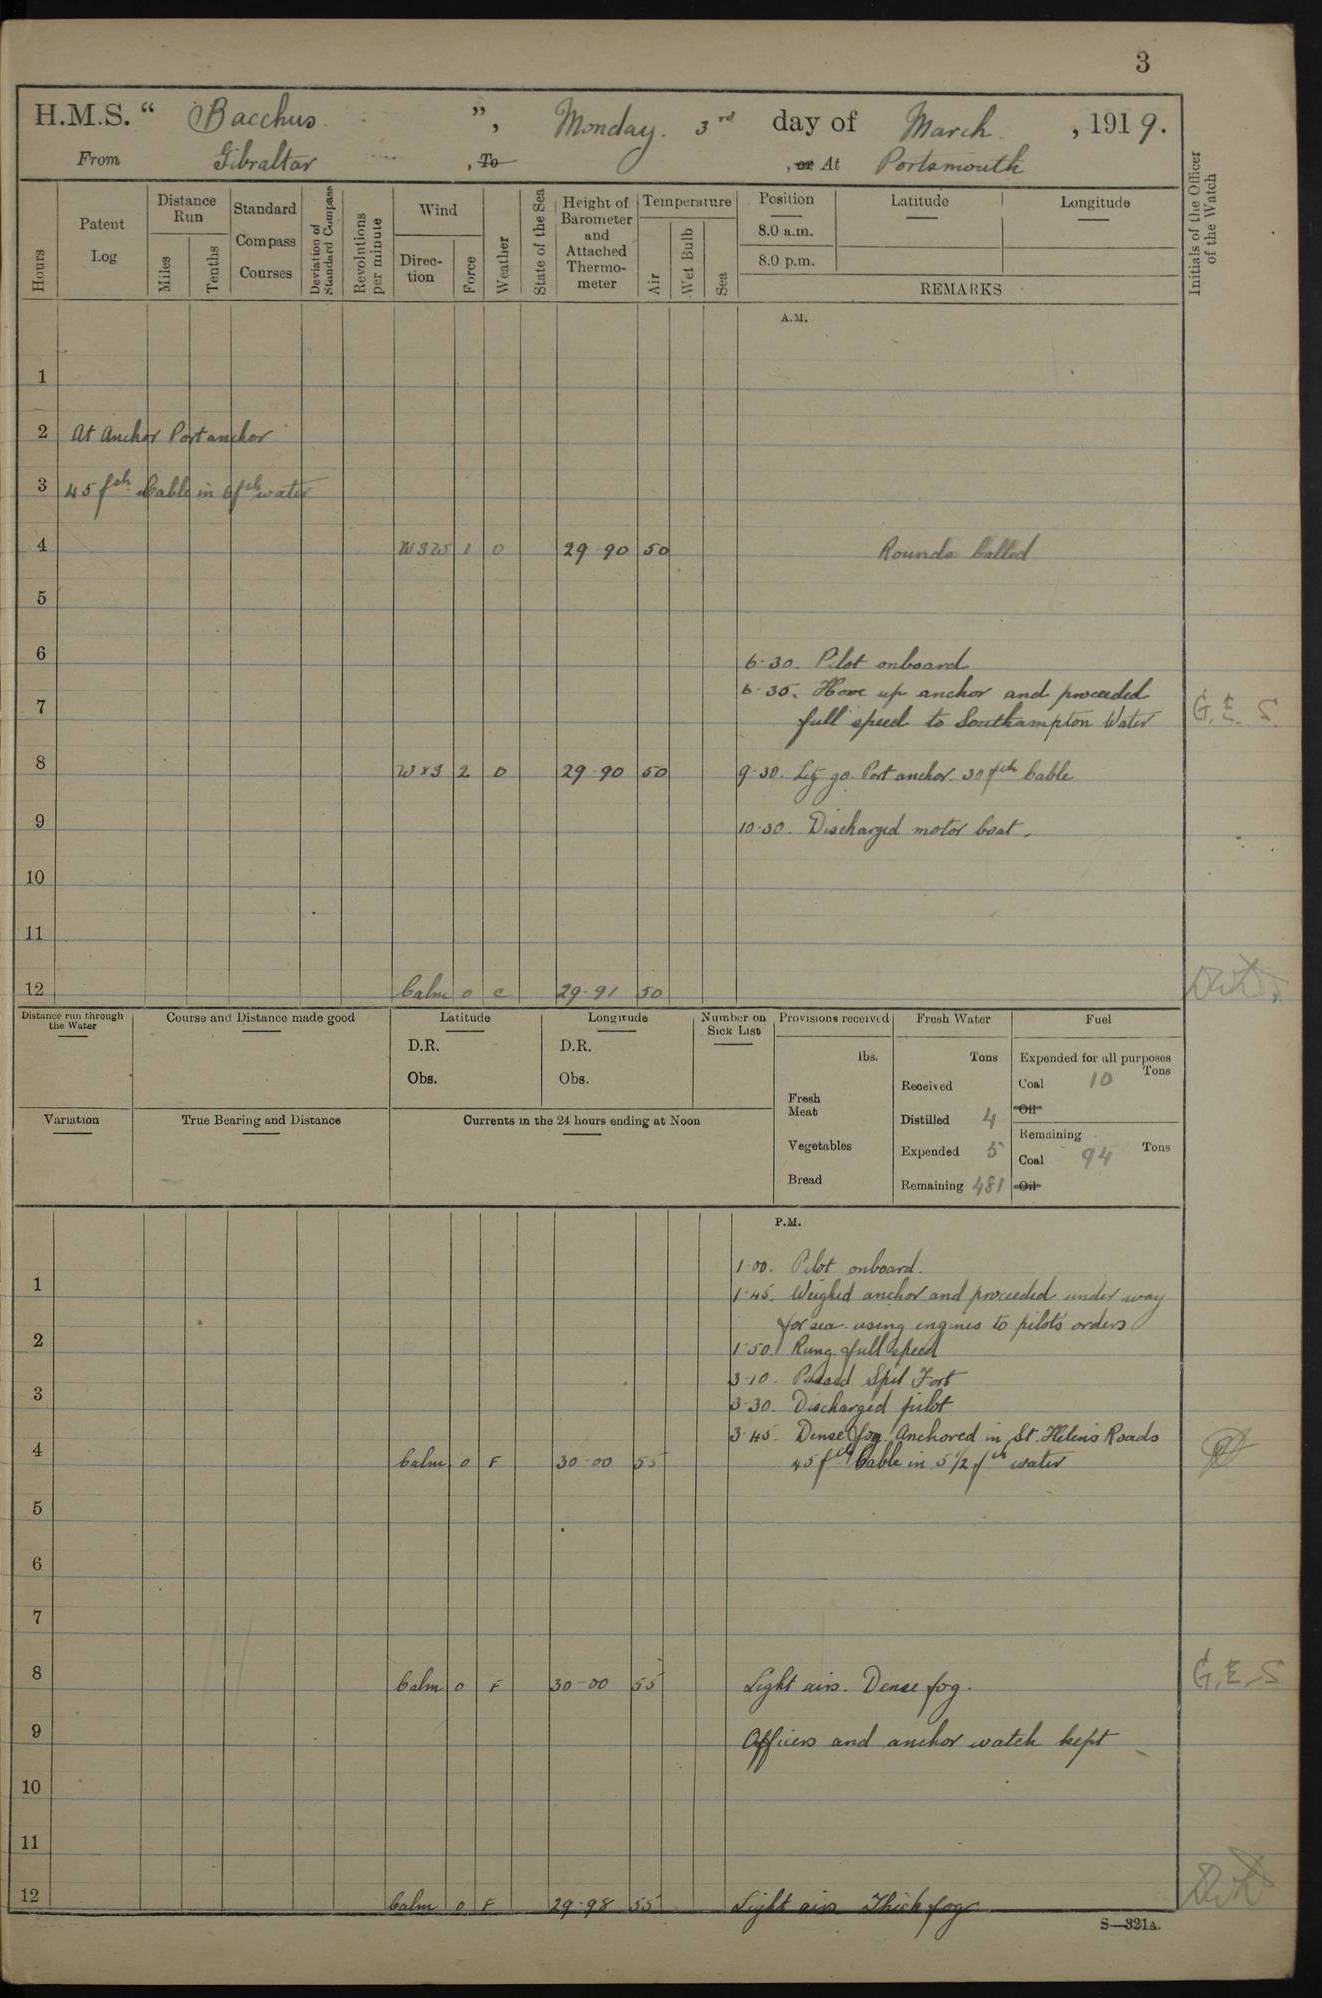 3
H.M.S. “ Bacchus ”, Monday. 3rd day of March , 1919.
From Gibraltar , To , or At Portsmouth
Hours
Patent Log
Distance Run
Miles
Tenths
Standard Compass Courses
Deviation of Standard Compass
Revolutions per minute
Wind
Direction
Force
Weather
State of the Sea
Height of Barometer and Attached Thermometer
Temperature
Air
Wet Bulb
Sea
Position
8.0 a.m.
8.0 p.m.
Latitude
Longitude
REMARKS
Initials of the Officer of the Watch
A.M.
1
2 At Anchor Port anchor
3 45 fth Cable in 6 fth water
4 WSW 1 O 29-90 50 Rounds Called
5
6 6-30. Pilot onboard
6-35. Hove up anchor and proceeded
7 full speed to Southampton Water G.E.S.
8 W x S 2 O 29-90 50 9-30. Let go Port anchor 30 fth Cable
9 10-30. Discharged motor boat.
10
11
12 Calm 0 C 29-91 50
Distance run through the Water
Course and Distance made good
Latitude
D.R.
Obs.
Longitude
D.R.
Obs.
Number on Sick List
Provisions received
lbs.
Fresh Meat
Vegetables
Bread
Fresh Water
Tons
Received
Distilled 4
Expended 5
Remaining 481
Fuel
Expended for all purposes
Tons
Coal 10
Oil
Remaining
Tons
Coal 94
Oil
Variation
True Bearing and Distance
Currents in the 24 hours ending at Noon
P.M.
1-00. Pilot onboard.
1 1-45. Weighed anchor and proceeded under way
for sea using engines to pilots orders
2 1-50. Rung full speed
3-10. Passed Spit Fort
3 3-30. Discharged pilot
3-45. Dense fog. Anchored in St. Helens Roads
4 Calm 0 F 30-00 55 45 fth Cable in 5 1/2 fth water
5
6
7
8 Calm 0 F 30-00 55 Light airs. Dense fog. G.E.S
9 Officers and anchor watch kept
10
11
12 Calm 0 F 29-98 55 Light airs Thick fog
S—321A.